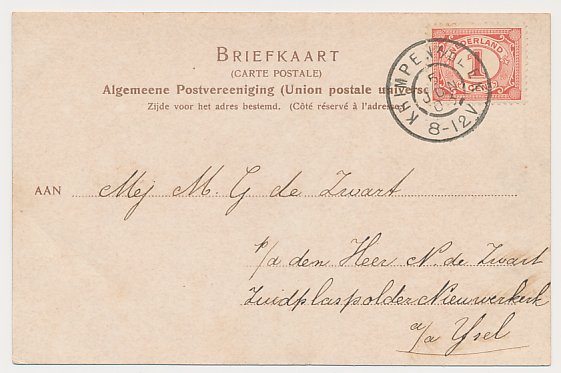 BRIEFKAART
(CARTE POSTALE)
Algemeene Postvereeniging (Union postale universe
Zijde voor het adres bestemd. (Côté réservé à l'adresse
NEDERLAND
1
CENT
KRIMPEN
5
JUN
8-12V
AAN Mej M. G de Zwart
p/a den Heer N. de Zwart
Zuidplaspolder Nieuwerkerk
a/a Ysel